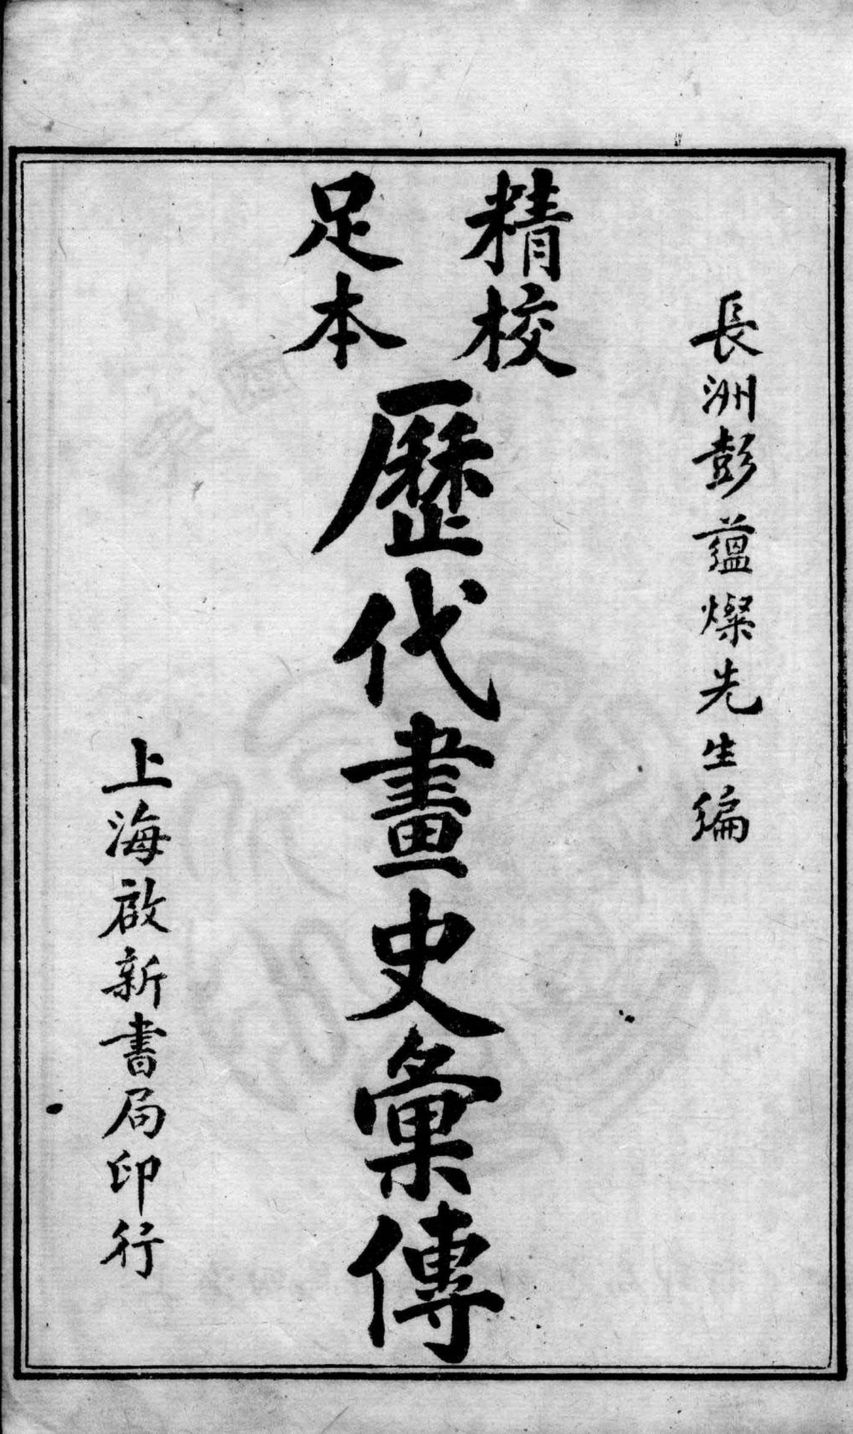 長洲彭蘊燦先生編
精校
足本
歷代畫史彙傳
上海啟新書局印行